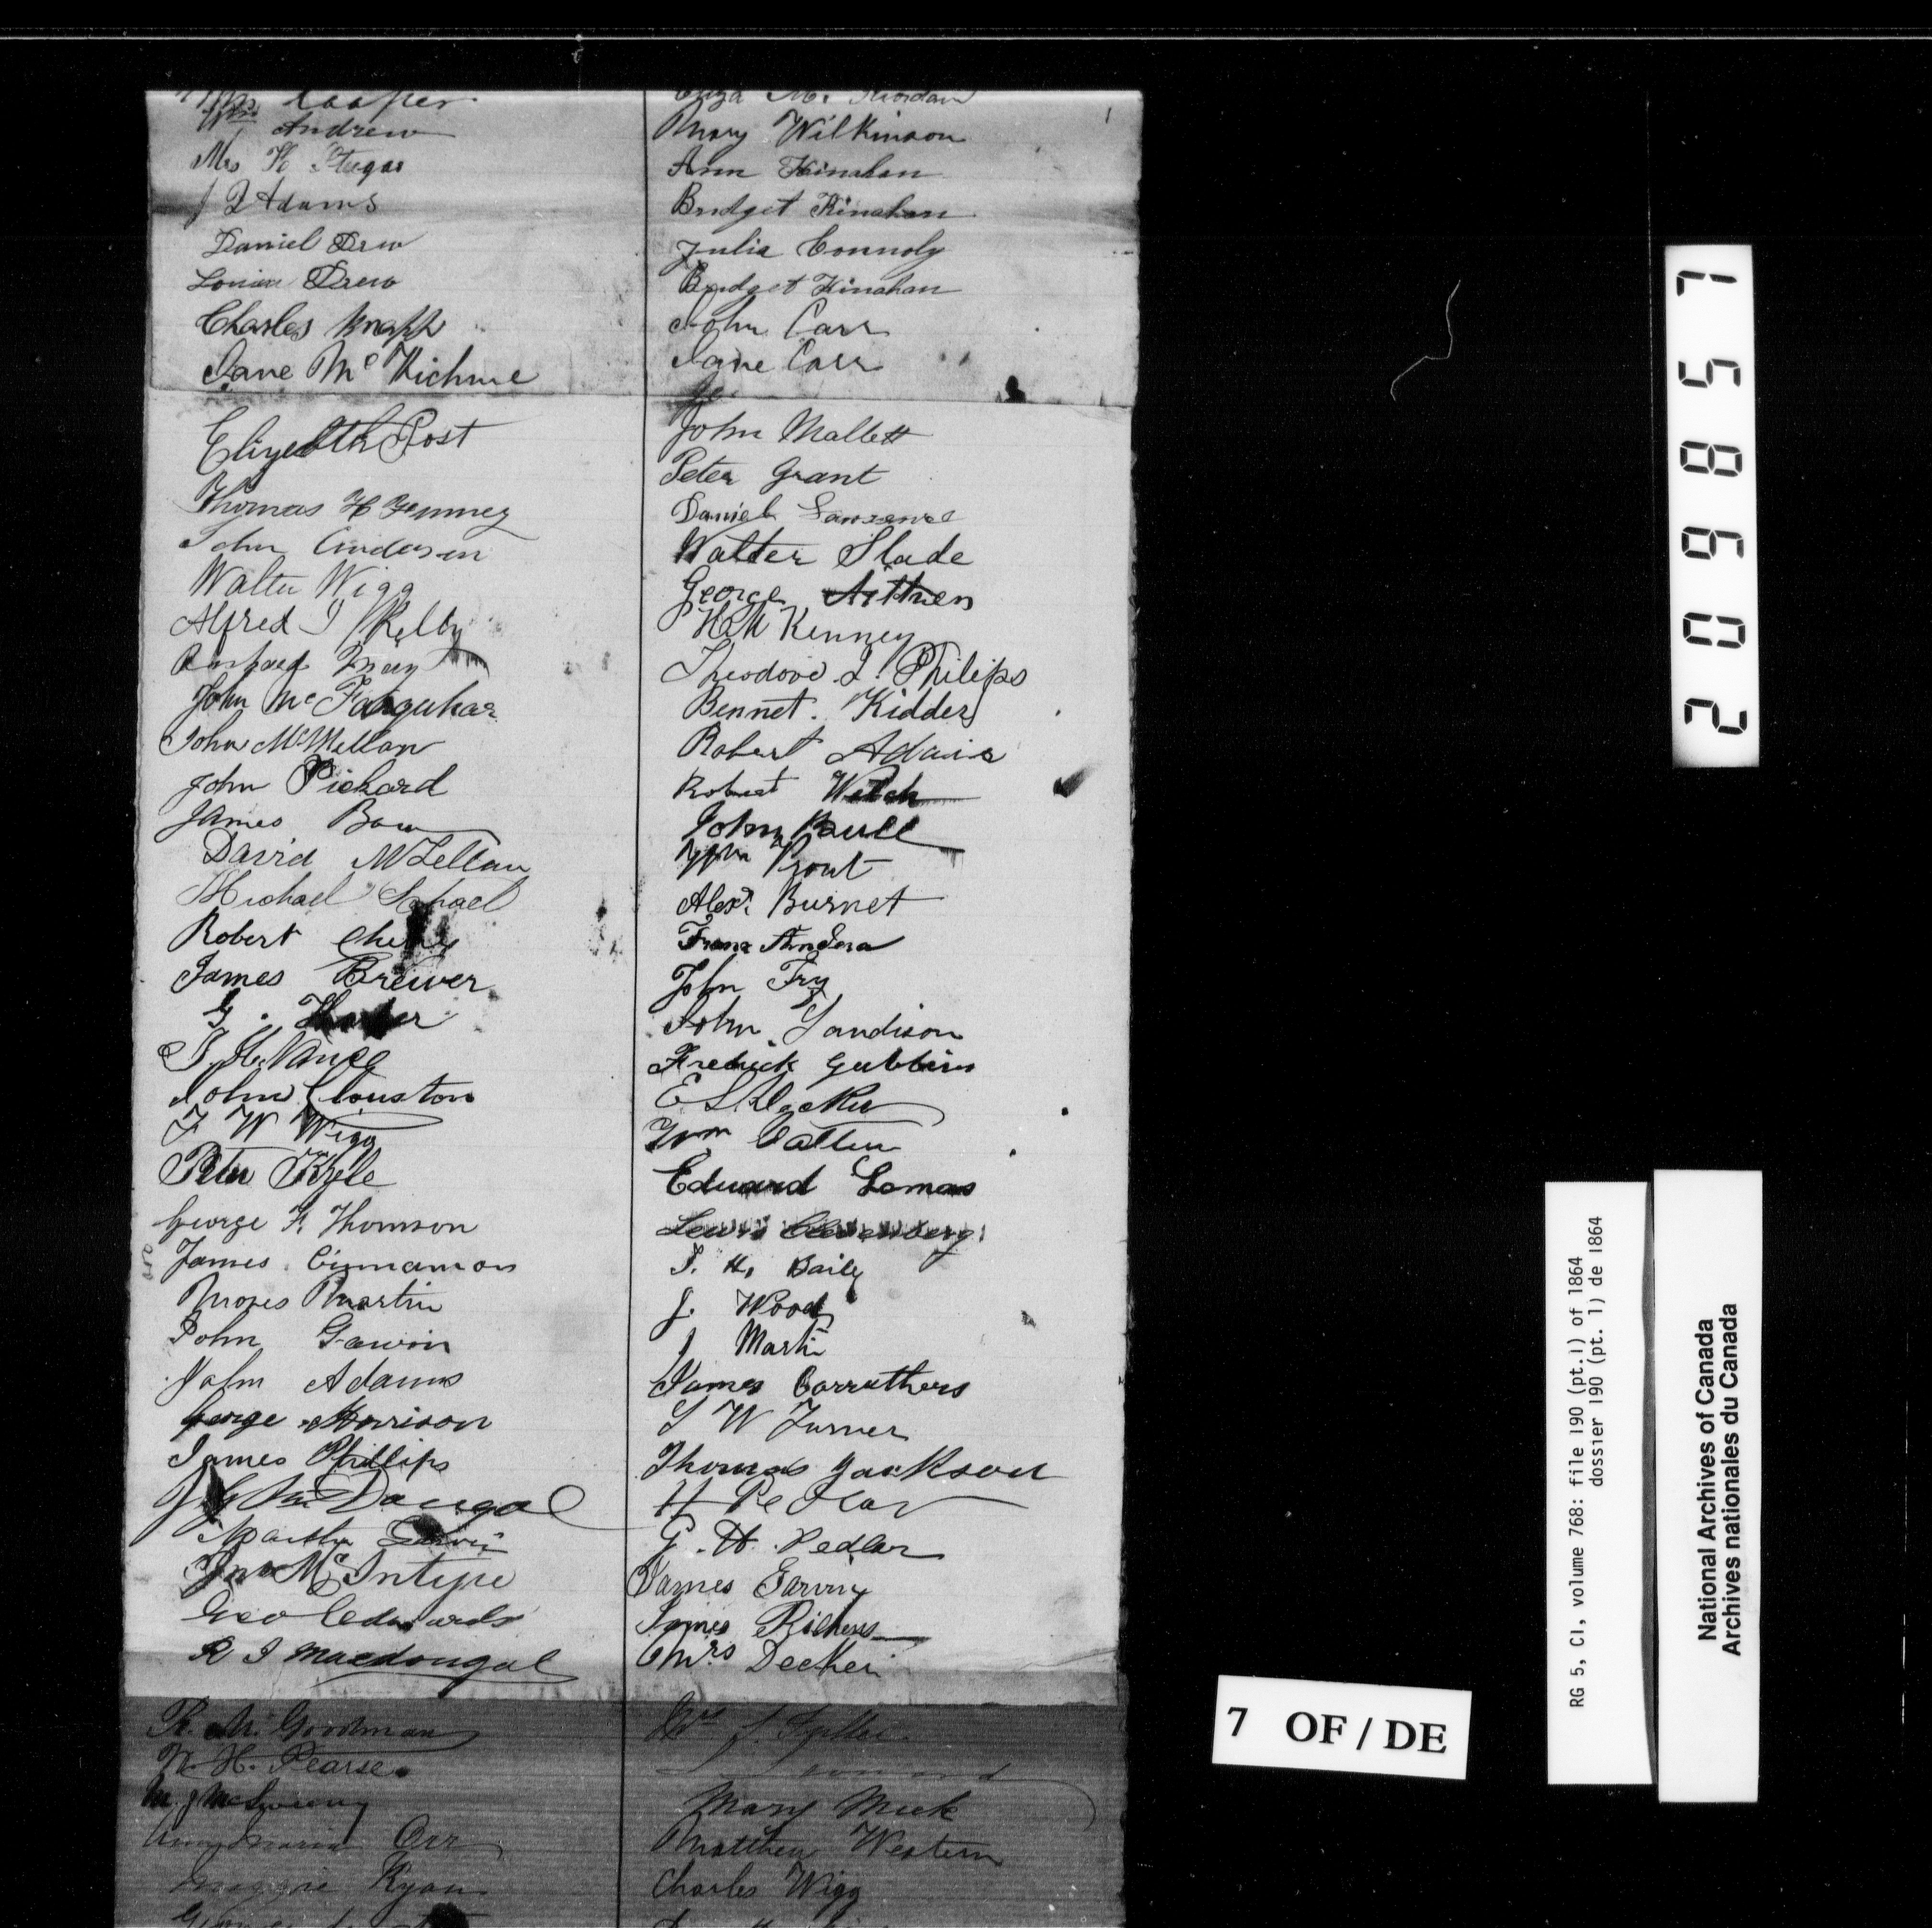 Cooper
Wm Andrew
Mrs H
J Q Adams
Daniel Drew
Louisa Drew
Charles Knapp
Jane Mc
Elizebth Post
Thomas H
John Anderson
Walter Wigg
Alfred J Kelly
John McFarquhar
John McMillan
John Pickard
James Bow
David McLellan
Michael
Robert Cherry
James Brewer
G.
Vance
John Clouston
F W Wigg
Peter Kyle
George F. Thomson
James Cinnamon
Moses Martin
John Gawin
John Adams
George Morrison
James Phillips
J G McDougal
Martha
Jno McIntyre
Geo Edwards
R I Macdougal
R. M. Goodman
W. H. Pearse
M J McSweeny
Ann Maria Orr
Maggie Ryan
Eliza M. Riordan
Mary Wilkinson
Ann Kinahan
Bridget Kinahan
Julia Connoly
Bridget Kinahan
John Carr
Jane Carr
John Mallett
Peter Grant
Daniel
Walter Slade
George Aitken
Kenney
Theodore L. Philips
Bennet. Kidder
Robert Adair
Robert Welch
John Bull
Wm Prout
Alexr Burnet
Franz
John Fry
John Sandison
Fredrick Gubbins
E S
Wm Patten
Edward Lomas
Lewis
T. H. Baily
J. Wood
J Martin
James Carruthers
S W Turner
Thomas Jackson
H Pedlar
G. H. Pedlar
James Garvey
James
Mrs Decker
Mary Muck
Matthew Western
Charles Wigg
209857
RG 5, C1, volume 768: file 190 (pt.1) of 1864
dossier 190 (pt. 1) de 1864
National Archives of Canada
Archives nationales du Canada
7 OF / DE